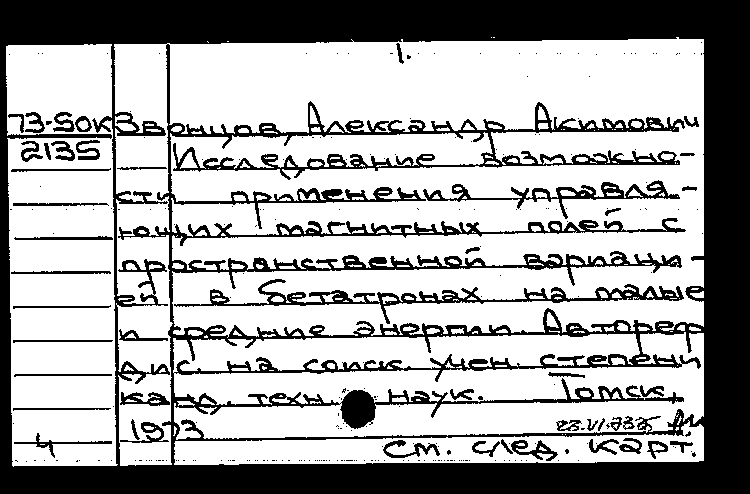 1.
73-50к Звонцов, Александр Акимович
2135 Исследование возможно-
сти применения управля-
ющих магнитных полей с
пространственной вариаци-
ей в бетатронах на малые
и средние энергии. Автореф
дис. на соиск. учен. степени
канд. техн. наук. Томск,
1973
4 См. след. карт.